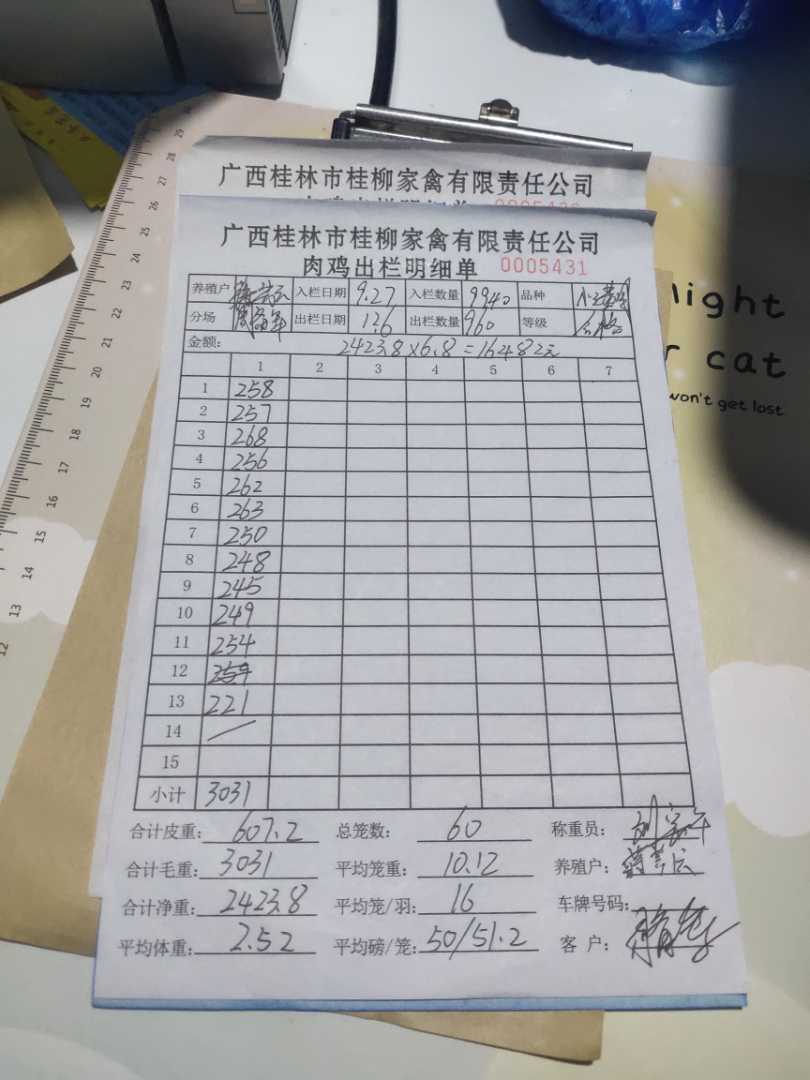 广西桂林市桂柳家禽有限责任公司
广西桂林市桂柳家禽有限责任公司
肉鸡出栏明细单 0005431
养殖户 入栏日期 9.27 入栏数量 9940 品种
分场 出栏日期 12.6 出栏数量 960 等级 合格
金额: 2423.8×6.8=16482元
1 2 3 4 5 6 7
1 258
2 257
3 268
4 256
5 262
6 263
7 250
8 248
9 245
10 249
11 254
12
13 221
14
15
小计 3031
合计皮重: 607.2 总笼数: 60 称重员:
合计毛重: 3031 平均笼重: 10.12 养殖户:
合计净重: 2423.8 平均笼/羽: 16 车牌号码:
平均体重: 2.52 平均磅/笼: 50/51.2 客 户:
light
cat
won't get lost
29
28
27
26
25
24
23
22
21
20
19
18
17
16
15
14
13
12